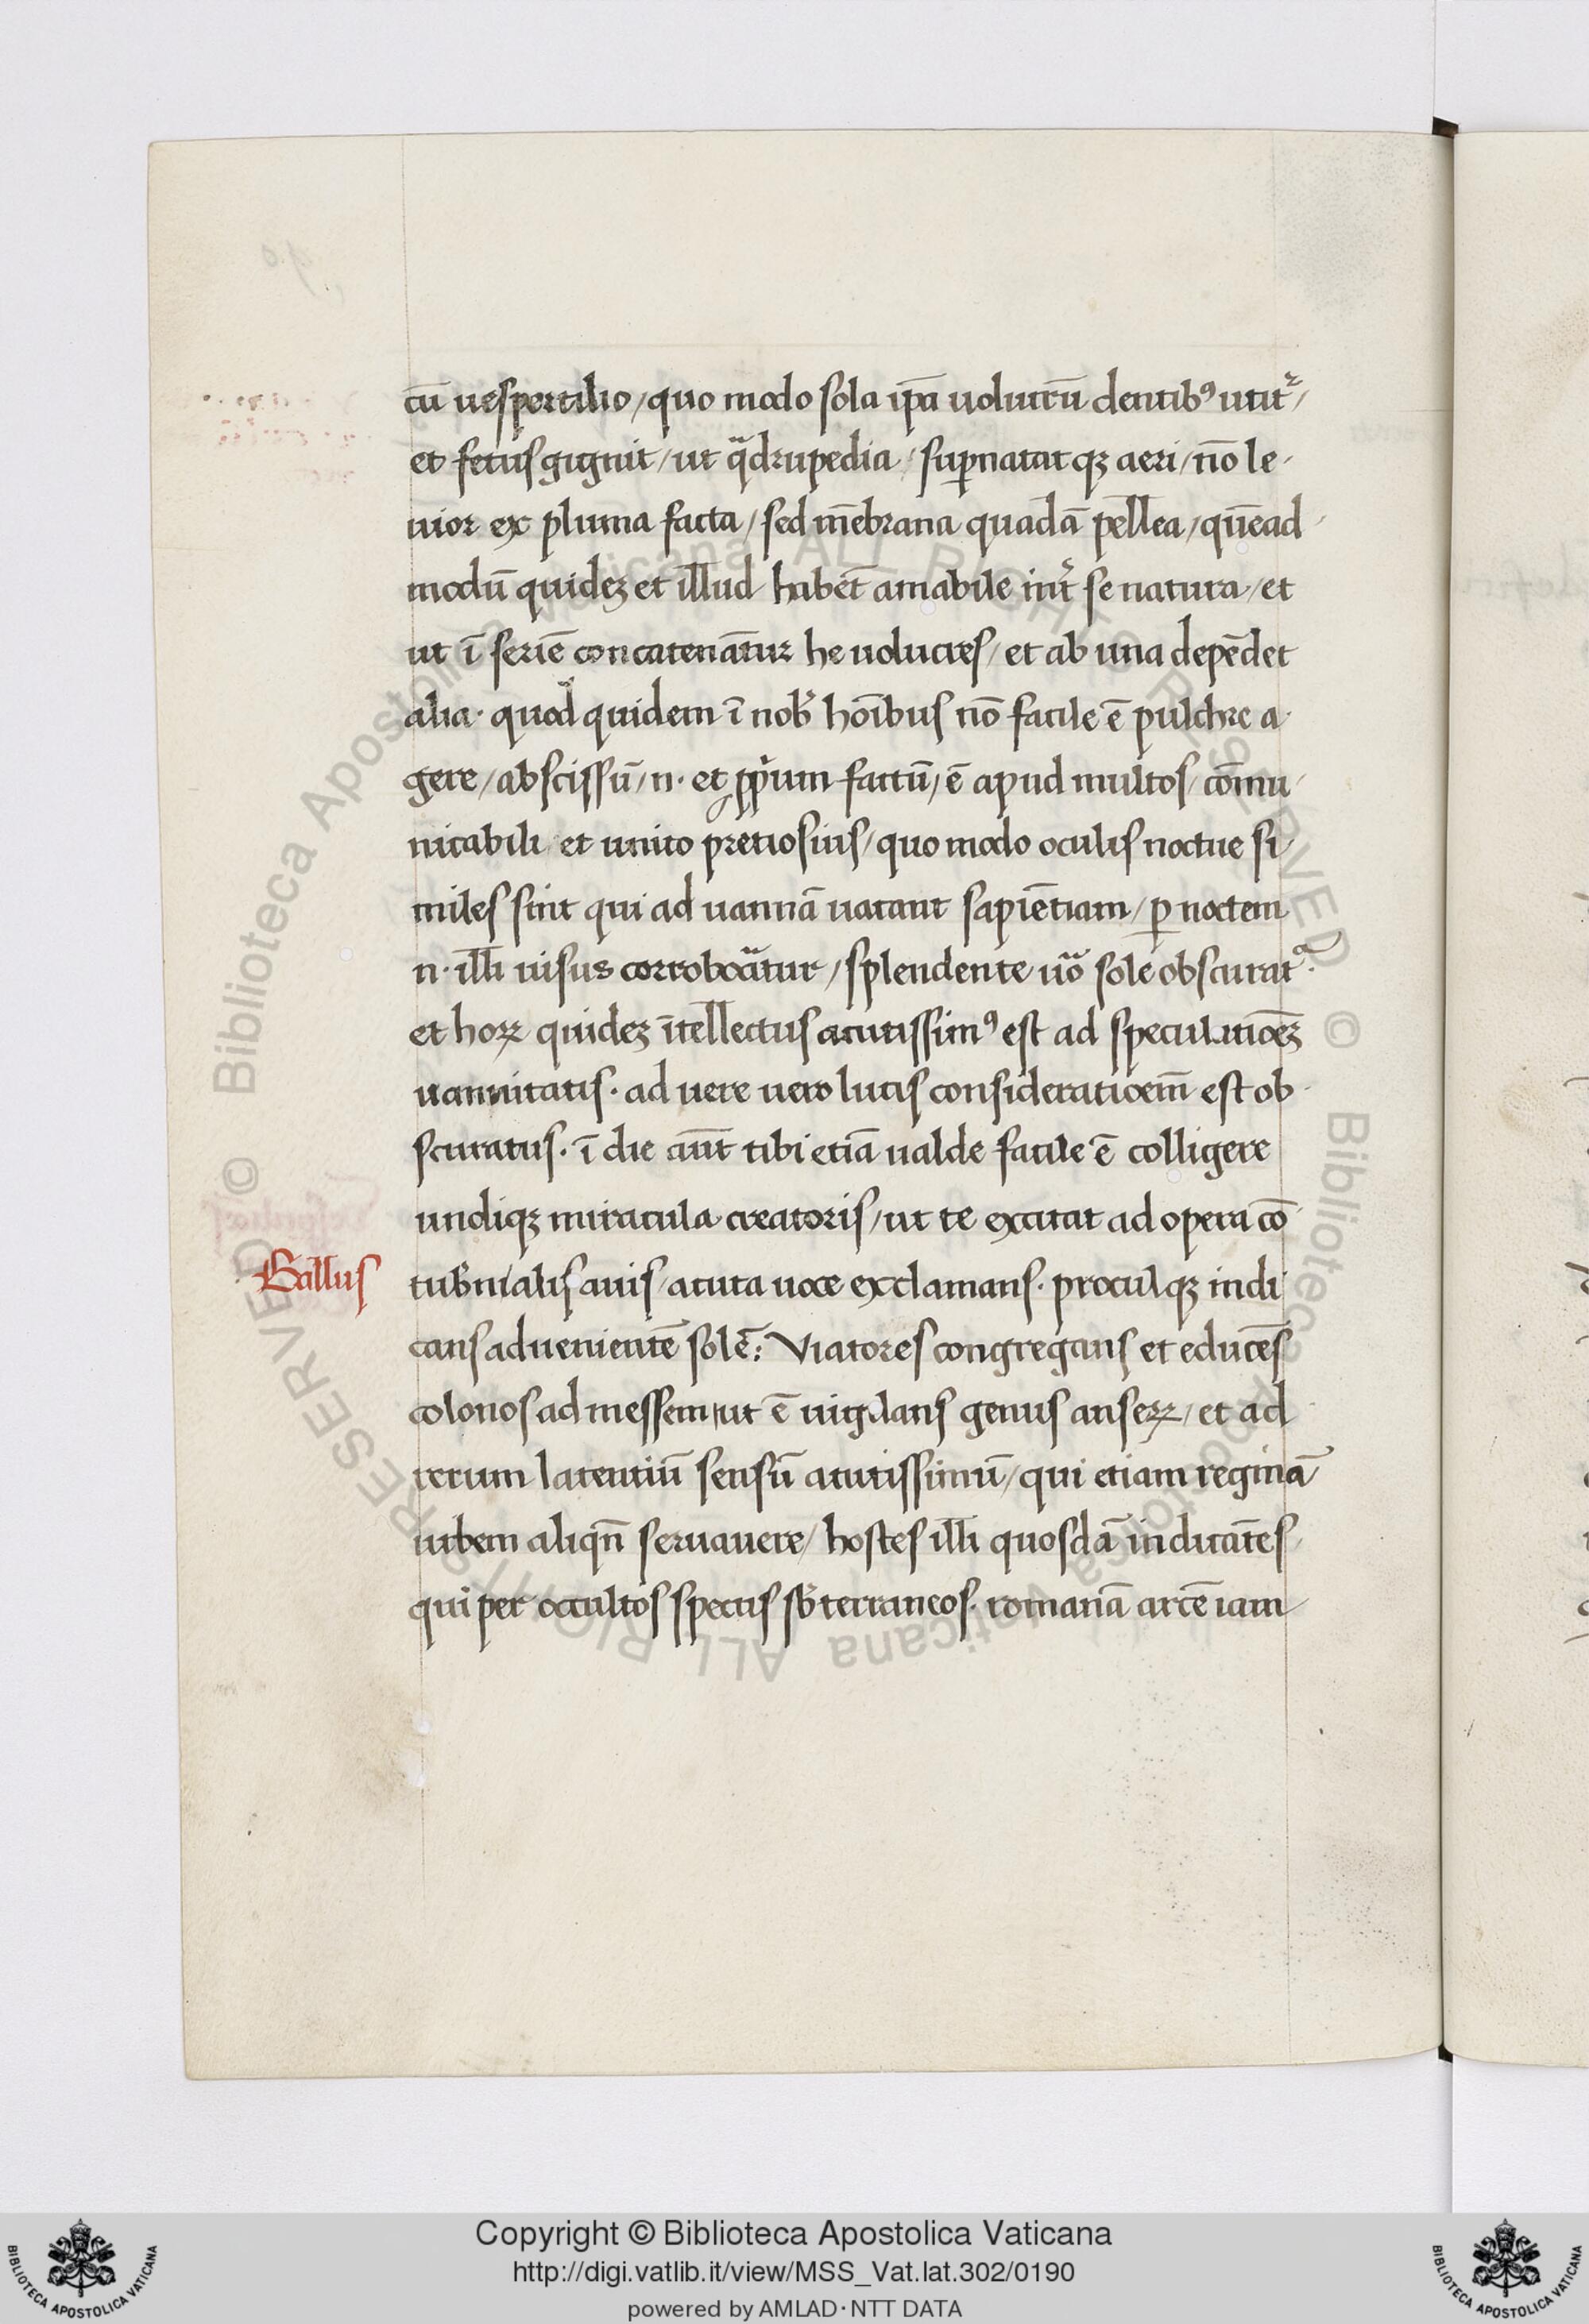 cū uespertilio/quo modo sola ip̄a uolucrū dentibꝰ utit᷑/
et fetus gignit/ut q̄drupedia/suꝑnatatqꝫ aeri/nō le-
uior ex pluma facta/sed mēbrana quadā pellea/quēad-
modū quideꝫ et illud habēt amabile int᷑ se natura/et
ut ī seriē concatenāt̄ur he uolucres/et ab una depēdet
alia. quod quidem ī nob᷑ hoībus nō facile ē pulchre a-
gere/abscissū/n. et ꝓp̄rium factū/ē apud multos/cōmu-
nicabili et unito pretiosius/quo modo oculis noctue si-
miles sint qui ad uannā uacant sapiētiam/ꝑ noctem
n. illi uisus corroboāt̄ur/splendente uō sole obscurat᷑.
et hoꝝ quideꝫ ītellectus acutissimꝰ est ad speculatioēꝫ
uannitatis. ad uere uero lucis considerationem̄ est ob-
scuratus. ī die aūt tibi etiā ualde facile ē colligere
undiqꝫ miracula creatoris/ut te excitat ad opera cō-
Gallus
tub̄nialis auis/acuta uoce exclamans. proculqꝫ indi-
cans aduenientē solē: Viatores congregans et educēs
colonos ad messem/ut ē uigilans genus anseꝝ/et ad
rerum latentiū sensū acutissimū/qui etiam reginā
urbem aliqn̄ seruauere/hostes illi quosdā indicātes/
qui per occultos specus sb᷑terraneos. romanā arcē iam
© Biblioteca Apostolica Vaticana ALL RIGHTS RESERVED © Biblioteca Apostolica Vaticana ALL RIGHTS RESERVED
BIBLIOTECA APOSTOLICA VATICANA
Copyright © Biblioteca Apostolica Vaticana
http://digi.vatlib.it/view/MSS_Vat.lat.302/0190
powered by AMLAD·NTT DATA
BIBLIOTECA APOSTOLICA VATICANA